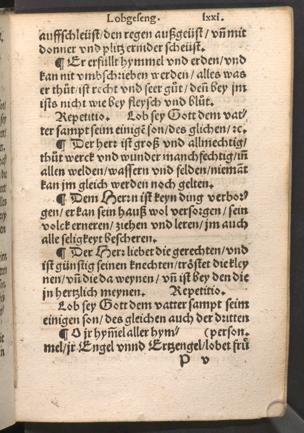 Lobgeseng. lxxi.
auffschleüst/den regen außgeüst/ vñ mit
donner vnd plitz ernider scheüst.
¶ Er erfüllt hymmel vnd erden/vnd
kan nit vmbschrieben werden/ alles was
er thůt/ist recht vnd seer gůt/ deñ bey jm
ists nicht wie bey fleysch vnd blůt.
Repetitio. Lob sey Gott dem vat/
ter sampt seim einigẽ son/des glichen/ ꝛc.
¶ Der herr ist groß vnd allmechtig/
thůt werck vnd wunder manchfechtig/iñ
allen welden/wassern vnd felden/niemãt
kan jm gleich werden noch gelten.
¶ Dem Herrn ist keyn ding verbor/
gen/er kan sein hauß wol versorgen/ sein
volck erneren/ ziehen vnd leren/jm auch
alle seligkeyt bescheren.
¶ Der Herr liebet die gerechten/vnd
ist günstig seinen knechten/tröstet die kley
nen/vñ die da weynen/ vñ ist bey den die
jn hertzlich meynen. Repetitio.
Lob sey Gott dem vatter sampt seim
einigen son/des gleichen auch der dritten
¶ O jr hym̃el aller hym/ (person.
mel/jr Engel vnnd Ertzengel/lobet frü
P v